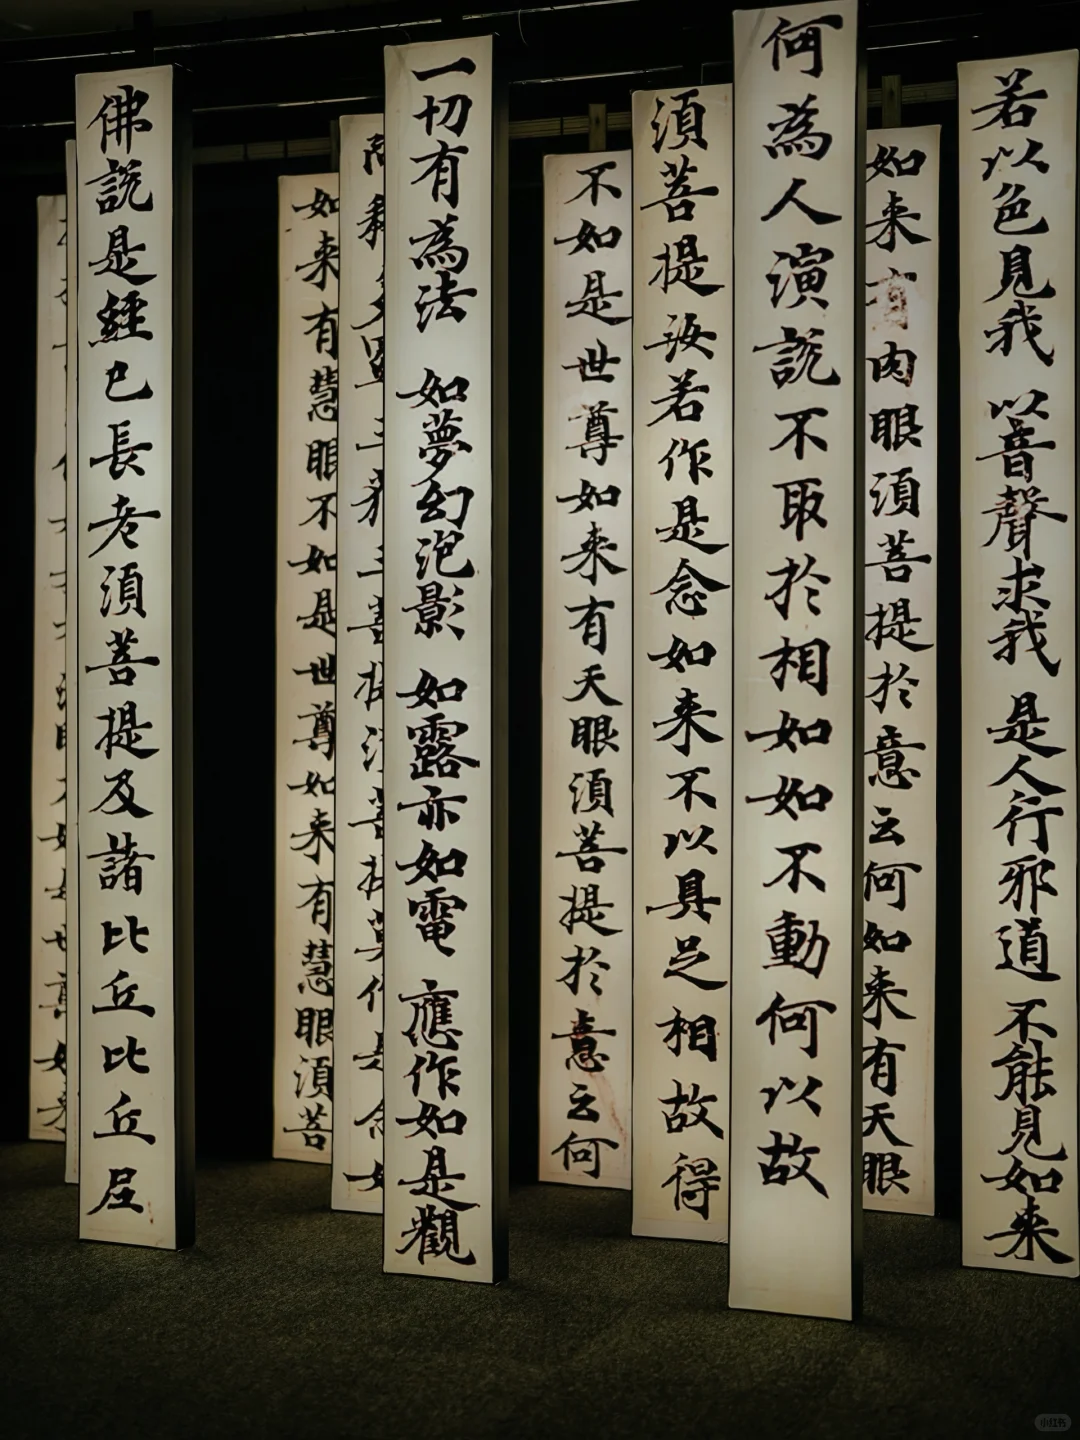 若以色見我 以音聲求我 是人行邪道 不能見如来
如来有肉眼須菩提於意云何如来有天眼
何為人演說不取於相如如不動何以故
須菩提汝若作是念如来不以具足相故得
不如是世尊如来有天眼須菩提於意云何
一切有為法 如夢幻泡影 如露亦如電 應作如是觀
三菩提須菩提莫作是念
如来有慧眼不如是世尊如来有慧眼須菩
佛說是經已長老須菩提及諸比丘比丘尼
小红书